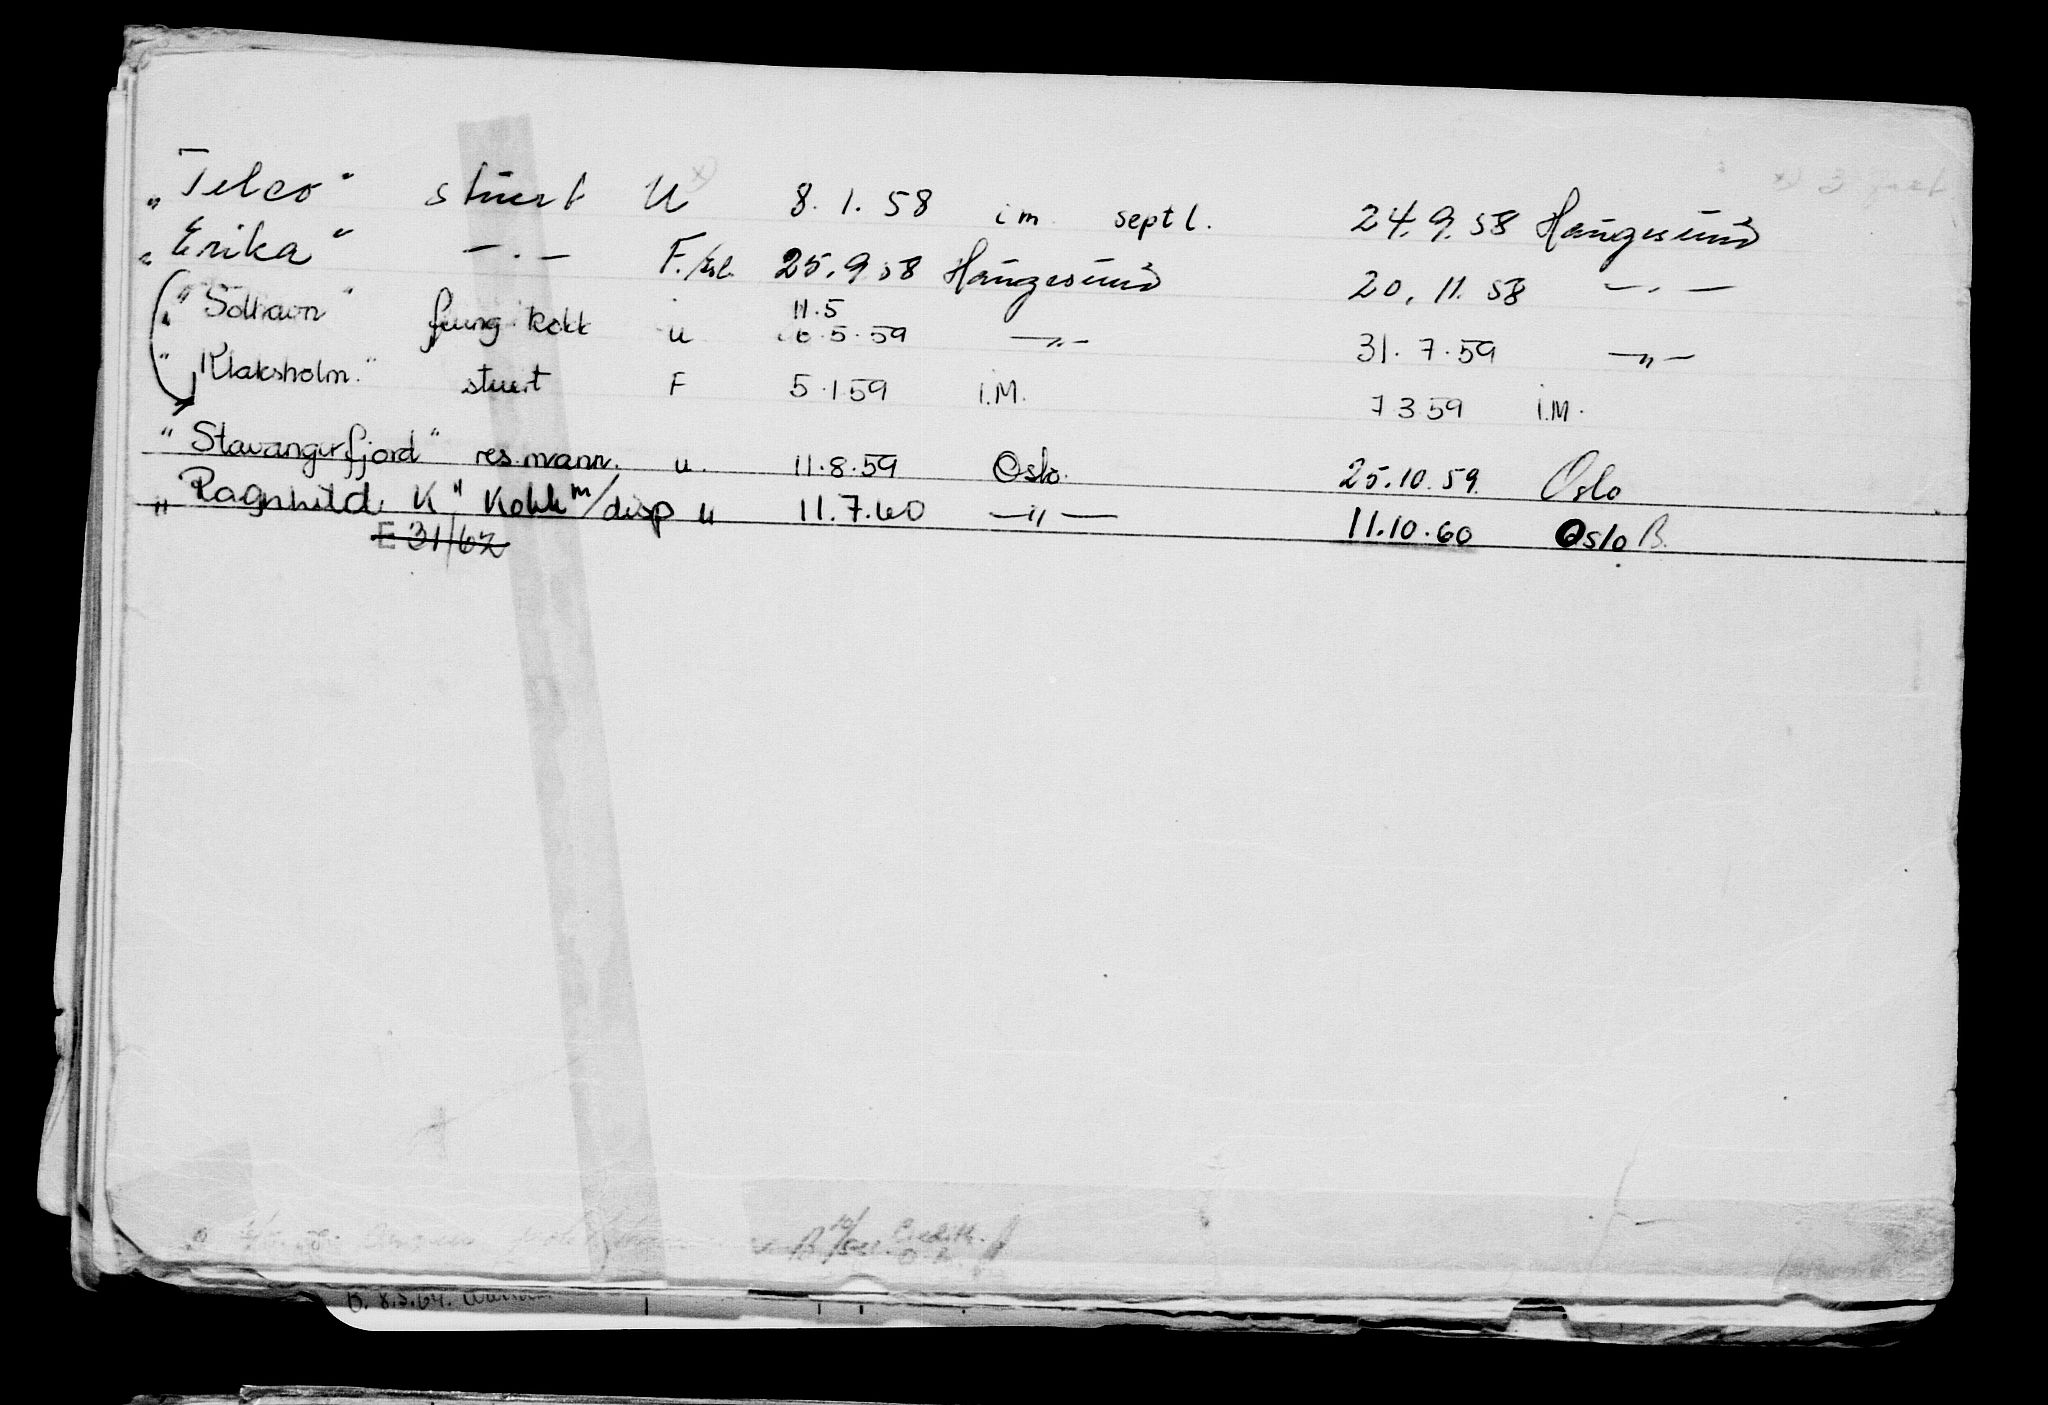 „Telco" stuert U 8.1.58 im septl. 24.9.58 Haugesund
„Erika" — . — F./ 25.9.58 Haugesund 20.11.58 — . —
"Solhavn" fung. kokk u 11.5 6.5.59 —„— 31.7.59 —„—
"Klaksholm." stuert F 5.1 59 i.M. 7 3 59 i.M.
"Stavangerfjord" res.mann. u. 11.8.59 Oslo. 25.10.59 Oslo
"Ragnhild K" Kokk m/disp u 11.7.60 —"— 11.10.60 Oslo B.
E 31/62